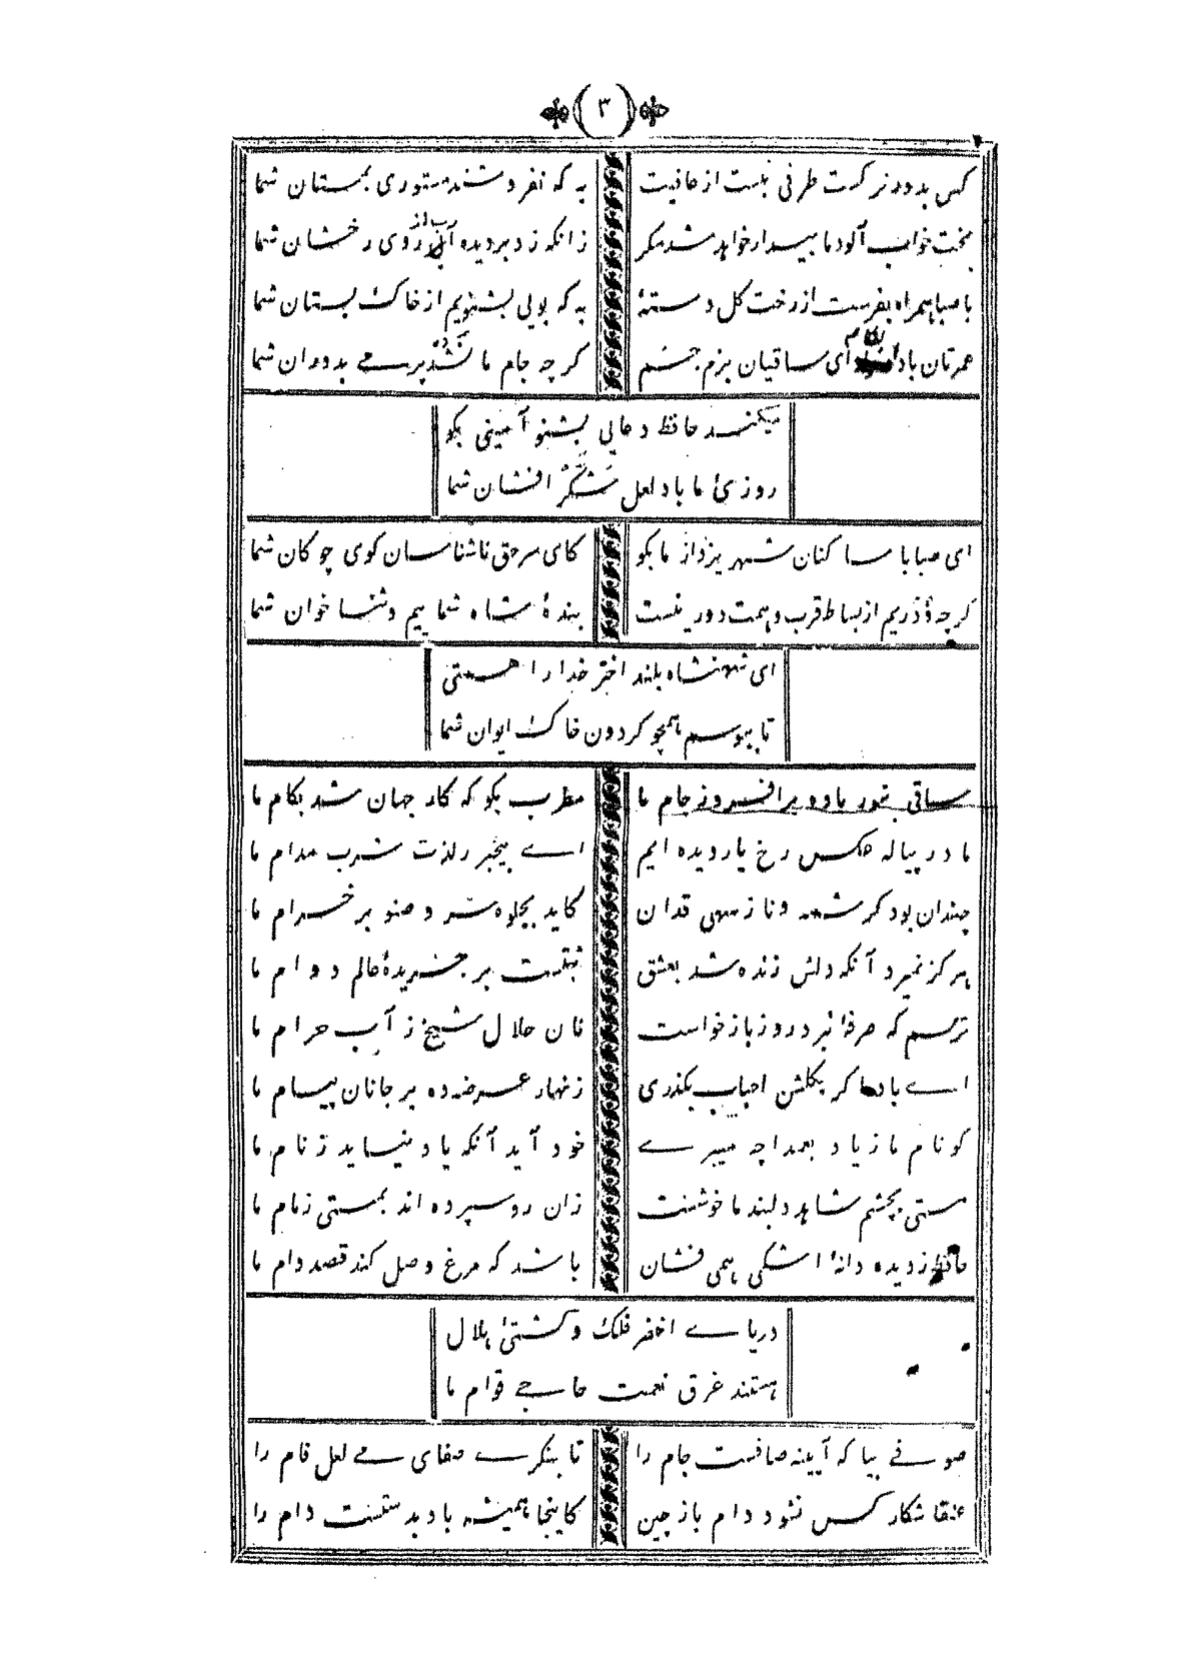 (۳)
کس بدور نرکست طرفی نبست از عافیت
به که نفروشند مستوری بمستان شما
بخت خواب آلود ما بیدار خواهد شد مکر
زانکه زد بردیده آبی روی رخشان شما
با صبا همراه بفرست از رخت کل دستهٔ
به که بویی بشنویم از خاک بستان شما
عمرتان باد ای ساقیان بزم جسم
کرچه جام ما نشد پر مے بدوران شما
میکند حافظ دعایی بشنو آمینی بکو
روزیٔ ما باد لعل شکر افشان شما
ای صبا با ساکنان شهر یزد از ما بکو
کای سر حق ناشناسان کوی چوکان شما
کرچه دوریم از بساط قرب و همت دور نیست
بندهٔ شاه شماییم و ثنا خوان شما
ای شهنشاه بلند اختر خدا را همتی
تا ببوسم همچو کردون خاک ایوان شما
ساقی بنور باده برافروز جام ما
مطرب بکو که کار جهان شد بکام ما
ما در پیاله عکس رخ یار دیده ایم
اے بیخبر زلذت شرب مدام ما
چندان بود کرشمه و ناز سهی قدان
کاید بجلوه سرو صنوبر خرام ما
هرکز نمیرد آنکه دلش زنده شد بعشق
ثبتست بر جریدهٔ عالم دوام ما
ترسم که صرفهٔ نبرد روز بازخواست
نان حلال شیخ ز آب حرام ما
اے باد اکر بکلشن احباب بکذری
زنهار عرضه ده بر جانان پیام ما
کو نام ما زیاد بعمدا چه میبرے
خود آید آنکه یاد نیاید ز نام ما
مستی بچشم شاهد دلبند ما خوشست
زان رو سپرده اند بمستی زمام ما
حافظ زدیده دانهٔ اشکی همی فشان
باشد که مرغ وصل کند قصد دام ما
دریاے اخضر فلک و کشتیٔ هلال
هستند غرق نعمت حاجے قوام ما
صوفے بیا که آیینه صافست جام را
تا بنکرے صفای مے لعل فام را
عنقا شکار کس نشود دام باز چین
کاینجا همیشه باد بدستست دام را